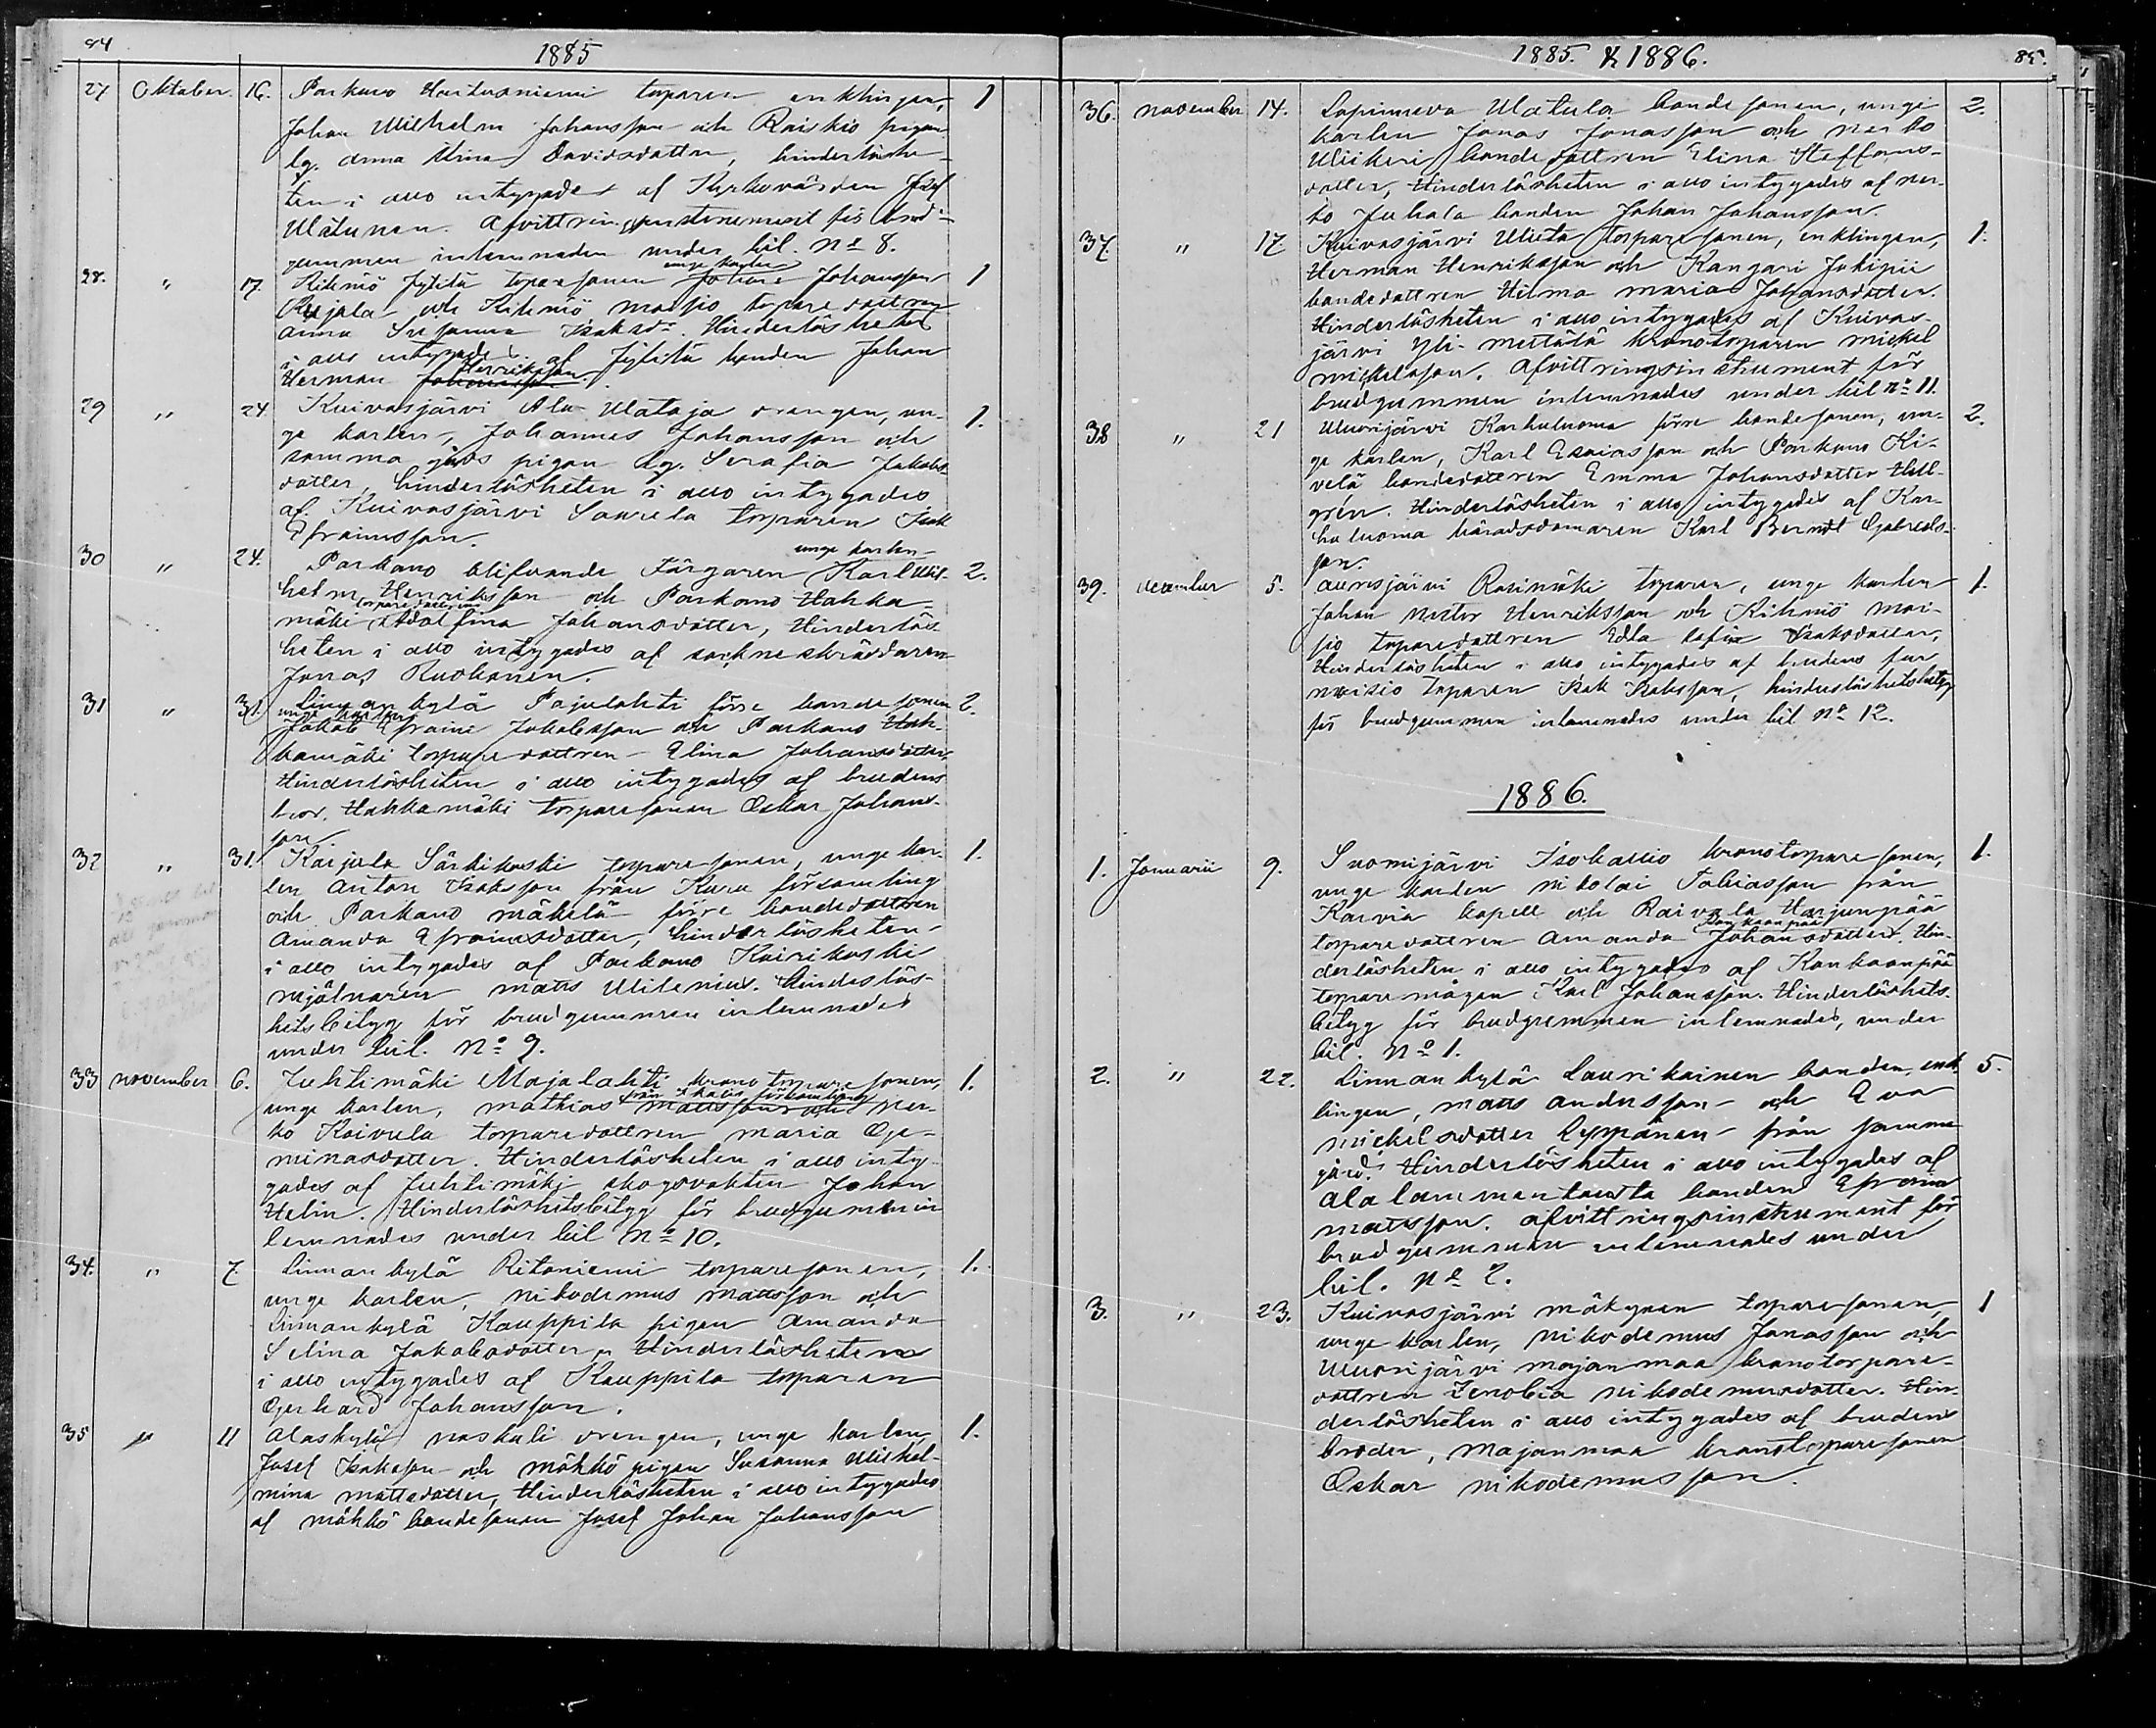 84
1885
27 Oktober. 16. Parkano Hartusniemi torparen enklingen, 1
Johan Wilhelm Johansson och Raiskio pigan
lg. Anna Stina Davidsdotter, hinderlöshe-
ten i allo intygades af Kyrkovärden Josef
Ulätunen. Afvittringsinstrument för brud-
gummen inlemnades under bil. No 8.
unge karlen
28. " 17. Rihmiö Jylhä toparesonen Johan Johansson 1
och Rihmiö torparedottren
Anna Susanna Isaksdr. Hinderlösheten
i allo intygades af Jylhä bonden Johan
Henriksson
Herman Johansson.
29 " 24 Kuivasjärvi Ala-Mataja drengen, un- 1.
ge karlen, Johannes Johansson och
samma gårds pigan lg. Serafia Jakobs-
dotter, hinderlösheten i allo intygades
af Kuivasjärvi Saurela torparen Isak
Efraimsson.
unge karlen
30 " 24. Parkano blifvande Färgaren Karl Wil- 2.
helm Henriksson och Parkano Hahka-
torparedottren
mäki Adolfina Johansdotter, Hinderlös-
heten i allo intygades af sockneskräddaren
Jonas Ruokonen.
31 " 31. Linnankylä Pajulahti förre bondesonen 2.
unge karlen
Jakob Efraim Jakobsson och Parkano Hah-
kamäki torparedottren Elina Johansdotter,
Hinderlösheten i allo intygades af brudens
bror, Hahkamäki torparesonen Oskar Johans-
son.
32 " 31. Karjula Särkikoski torparesonen, unge kar- 1.
len Anton Isaksson från Kuru församling
och Parkano Mäkelä förre bondedottren
Amanda Efraimsdotter, hinderlösheten
i allo intygades af Parkano Kairikoski
mjölnaren Matts Wilenius. Hinderlös-
hetsbetyg för brudgummen inlemnades
under bil. No 9.
33 november 6. Juhtimäki Majalahti kronotorparesonen, 1.
från Ikalis församling
unge karlen, Mathias Mattsson och Ner-
ko Koivula torparedottren Maria
minasdotter. Hinderlösheten i allo inty-
gades af Juhtimäki skogsvakten Johan
Helin. Hinderlöshetsbetyg för brudgummen in
lemnades under bil No 10.
34. " 7. Linnankylä Ritoniemi torparesonen, 1.
unge karlen, Nikodemus Mattsson och
Linnankylä Kauppila pigan Amanda
Selina Jakobsdotter, Hinderlösheten
i allo intygades af Kauppila torparen
Gerhard Johansson.
35 " 11 Alaskylä Naskali drengen, unge karlen, 1.
Josef Isaksson och Mökkö pigan Susanna Wilhel-
mina Mattsdotter, Hinderlösheten i allo intygades
af Mökkö bondesonen Josef Johan Johansson
1885. & 1886.
85.
36. november 14. Lapinneva Watula bondesonen, unge 2.
karlen Jonas Jonasson och Nerko
Wiikeri bondedottren Elina Steffans-
dotter, Hinderlösheten i allo intygades af Ner-
ko Juhala bonden Johan Johansson.
37. " 17. Kuivasjärvi torparesonen, enklingen, 1.
Herman Henriksson och Kangari Jokipii
bondedottren Hilma Maria Johansdotter.
Hinderlösheten i allo intygades af Kuivas-
järvi Yli-Mettälä kronotorparen Mickel
Mickelsson. Afvittringsinstrument för
brudgummen inlemnades under bil No 11.
38 " 21 Wuorijärvi Karhuluoma förre bondesonen, un- 2.
ge karlen, Karl Esaiasson och Parkano Ki-
velä bondedottren Emma Johansdotter Hell-
grén. Hinderlösheten i allo intygades af Kar-
huluoma häradsdomaren Karl Berndt Gabriels-
son.
39. december 5. Aurejärvi Rasinmäki torparen, unge karlen 1.
Johan Nestor Henriksson och Rihmiö Moi-
sio torparedottren Edla Sofia Isaksdotter,
Hinderlösheten i allo intygades af brudens far
Moisio torparen Isak Isaksson, hinderlöshetsbetyg
för brudgummen inlemnades under bil No 12.
1886.
1. Januarii 9. Suomijärvi Isokallio kronotorparesonen, 1.
unge karlen Nikolai Tobiasson från
Karvia kapell och Raivala Harjunpää
Kankaanpää
torparedottren Amanda Johansdotter. Hin-
derlösheten i allo intygades af Kankaanpää
torparemågen Karl Johansson. Hinderlöshets-
betyg för brudgummen inlemnades, under
bil. No 1.
2. " 22. Linnankylä Laurikainen bonden, enk- 5.
lingen, Matts Andersson och Eva
Mickelsdotter Lympänen från samma
gård. Hinderlösheten i allo intygades af
Alalammentausta bonden Efraim
Mattsson. Afvittringsinstrument för
brudgummen inlemnades under
bil. No 2.
3. " 23. Kuivasjärvi Mäkynen torparesonen, 1
unge karlen, Nikodemus Jonasson och
Wuorijärvi Majanmaa kronotorpare-
dottren Zenobia Nikodemusdotter. Hin-
derlösheten i allo intygades af brudens
broder, Majanmaa kronotorparesonen
Oskar Nikodemusson.